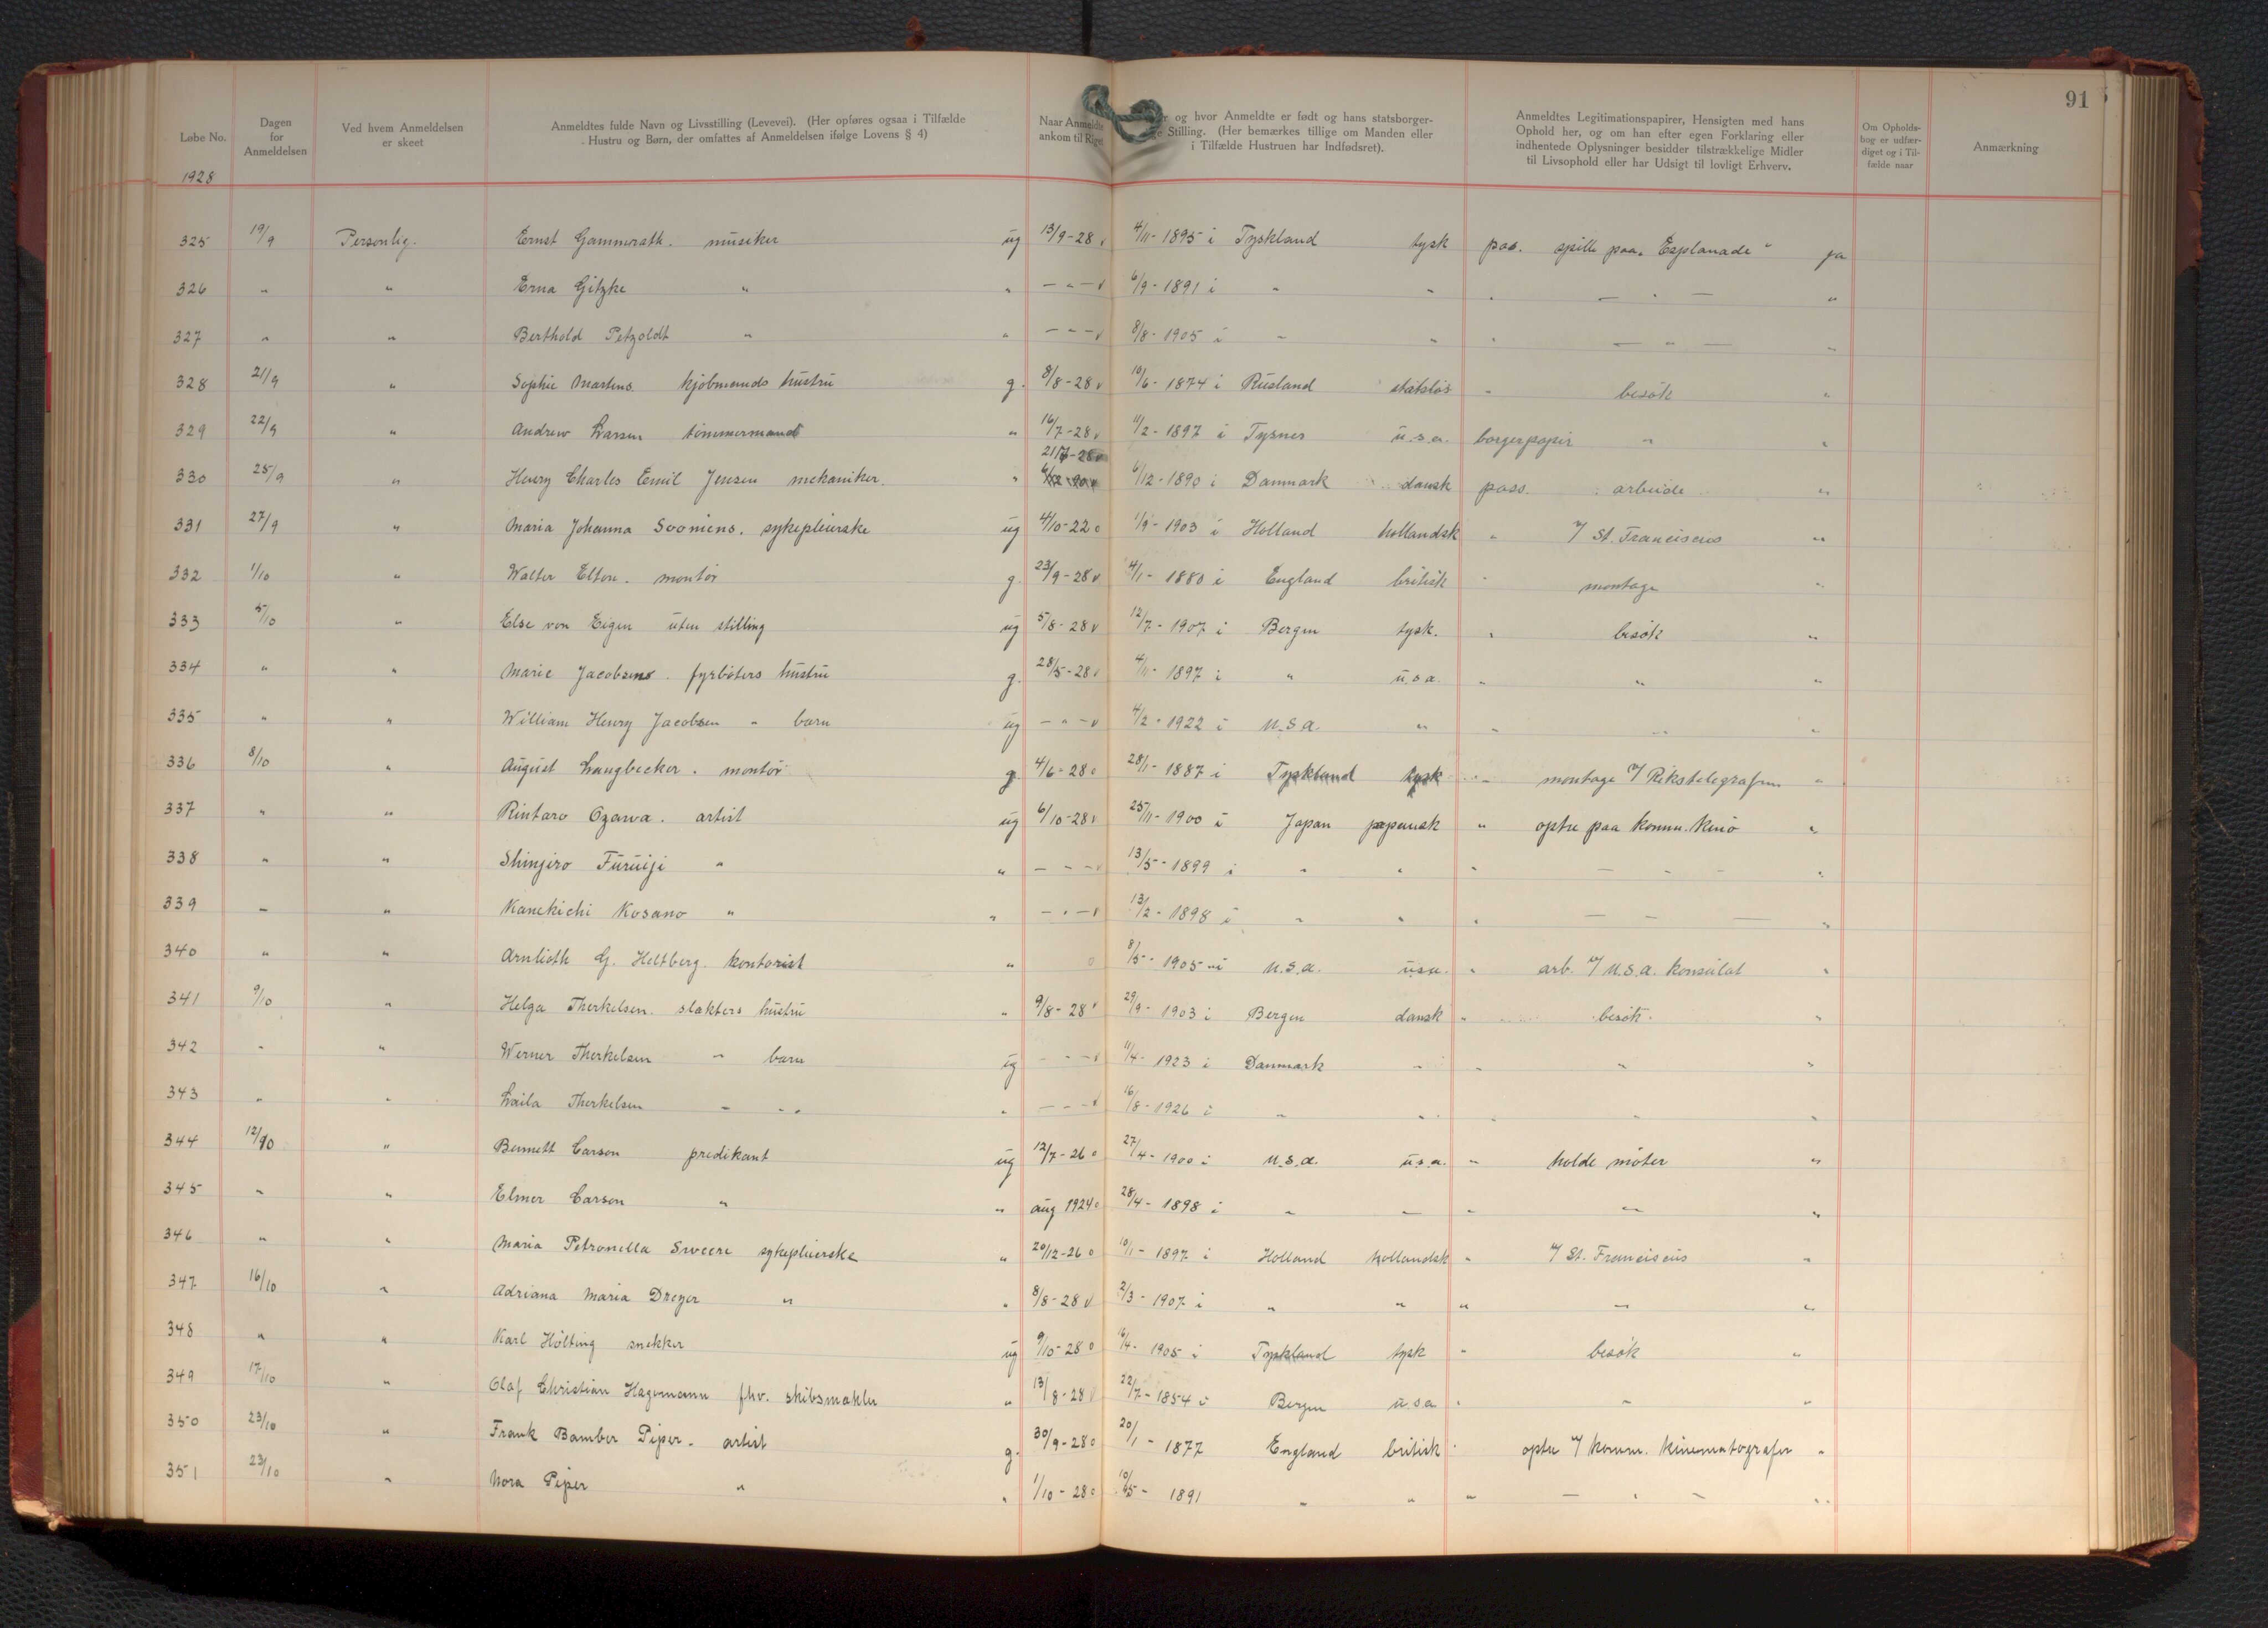 91
Løbe No.
Dagen for Anmeldelsen
Ved hvem Anmeldelsen er skeet
Anmeldtes fulde Navn og Livsstilling (Levevei). (Her opføres ogsaa i Tilfælde Hustru og Børn, der omfattes af Anmeldelsen ifølge Lovens § 4)
Naar Anmeldte ankom til Riget
og hvor Anmeldte er født og hans statsborger- Stilling. (Her bemærkes tillige om Manden eller i Tilfælde Hustruen har Indfødsret).
Anmeldtes Legitimationspapirer, Hensigten med hans Ophold her, og om han efter egen Forklaring eller indhentede Oplysninger besidder tilstrækkelige Midler til Livsophold eller har Udsigt til lovligt Erhverv.
Om Opholdsbog er udfærdiget og i Tilfælde naar
Anmærkning
1928
325 19/9 Personlig. Ernst Gammerath. musiker ug 13/9-28 v 4/11-1895 i Tyskland tysk pas. spille paa "Esplanade" ja
326 " " Erna Gitzke " " - " - v 6/9-1891 i " " " - " - "
327 " " Berthold Petzoldt " " - " - v 8/8-1905 i " " " - " - "
328 21/9 " Sophie Martens. kjøbmands hustru g. 8/8-28 v 10/6-1874 i Rusland statsløs " besøk "
329 22/9 " Andrew Larsen tømmermand " 16/7-28 v 11/2-1897 i Tysnes u.s.a. borgerpapir " "
330 25/9 " Henry Charles Emil Jensen mekaniker. " 6/12-1890 i Danmark dansk pass. arbeide "
331 27/9 " Maria Johanna Soomens. sykepleierske ug 4/10-22 o 1/9-1903 i Holland hollandsk " v/ St. Franciscus "
332 1/10 " Walter Elton. montør g. 23/9-28 v 4/1-1880 i England britisk " montage "
333 5/10 " Else von Eigen uten stilling ug 5/8-28 v 12/7-1907 i Bergen tysk. " besøk "
334 " " Marie Jacobsens. fyrbøters hustru g. 28/5-28 v 4/11-1897 i " u.s.a. " " "
335 " " William Henry Jacobsen " barn ug - " - v 4/2-1922 i U.S.A. " " " "
336 8/10 " August Langbecker. montør g 4/6-28 o 28/1-1887 i Tyskland tysk " montage v/ Rikstelegrafen "
337 " " Rintaro Ozawa. artist ug 6/10-28 v 25/11-1900 i Japan japansk " optre paa komm. kino "
338 " " Shinjiro Furuiji " " - - - v 13/5-1899 i " " " - " - "
339 " " Kanekichi Kosano " " - " - v 13/2-1898 i " " " - " - "
340 " " Arnlioth G. Heltberg. kontorist " o 8/5-1905 i U.S.A. usa. " arb. v/ U.S.A. konsulat "
341 9/10 " Helga Therkelsen. slakters hustru " 9/8-28 v 29/9-1903 i Bergen dansk " besøk. "
342 " " Werner Therkelsen " barn ug - " - v 11/4-1923 i Danmark " " " "
343 " " Laila Therkelsen " " " - - - v 16/8-1926 i " " " " "
344 12/10 " Bennett Carson predikant ug 12/7-26 o 27/4-1900 i U.S.A. u.s.a. " holde møter "
345 " " Elmer Carson " " aug 1924 o 28/4-1898 i " " " " "
346 " " Maria Petronella Sweere sykepleierske " 20/12-26 o 10/1-1897 i Holland hollandsk " v/ St. Franciscus "
347 16/10 " Adriana Maria Dreyer " " 8/8-28 v 2/3-1907 i " " " " "
348 " " Karl Hölting snekker ug 9/10-28 o 16/4-1905 i Tyskland tysk " besøk "
349 17/10 " Olaf Christian Hagemann fhv. skibsmækler " 13/8-28 v 22/7-1854 i Bergen u.s.a " " "
350 23/10 " Frank Bamber Piper. artist g. 30/9-28 o 20/1-1877 England britisk " optre v/ komm. kinematografer "
351 23/10 " Nora Piper " " 1/10-28 o 10/5-1891 " " " - " - "